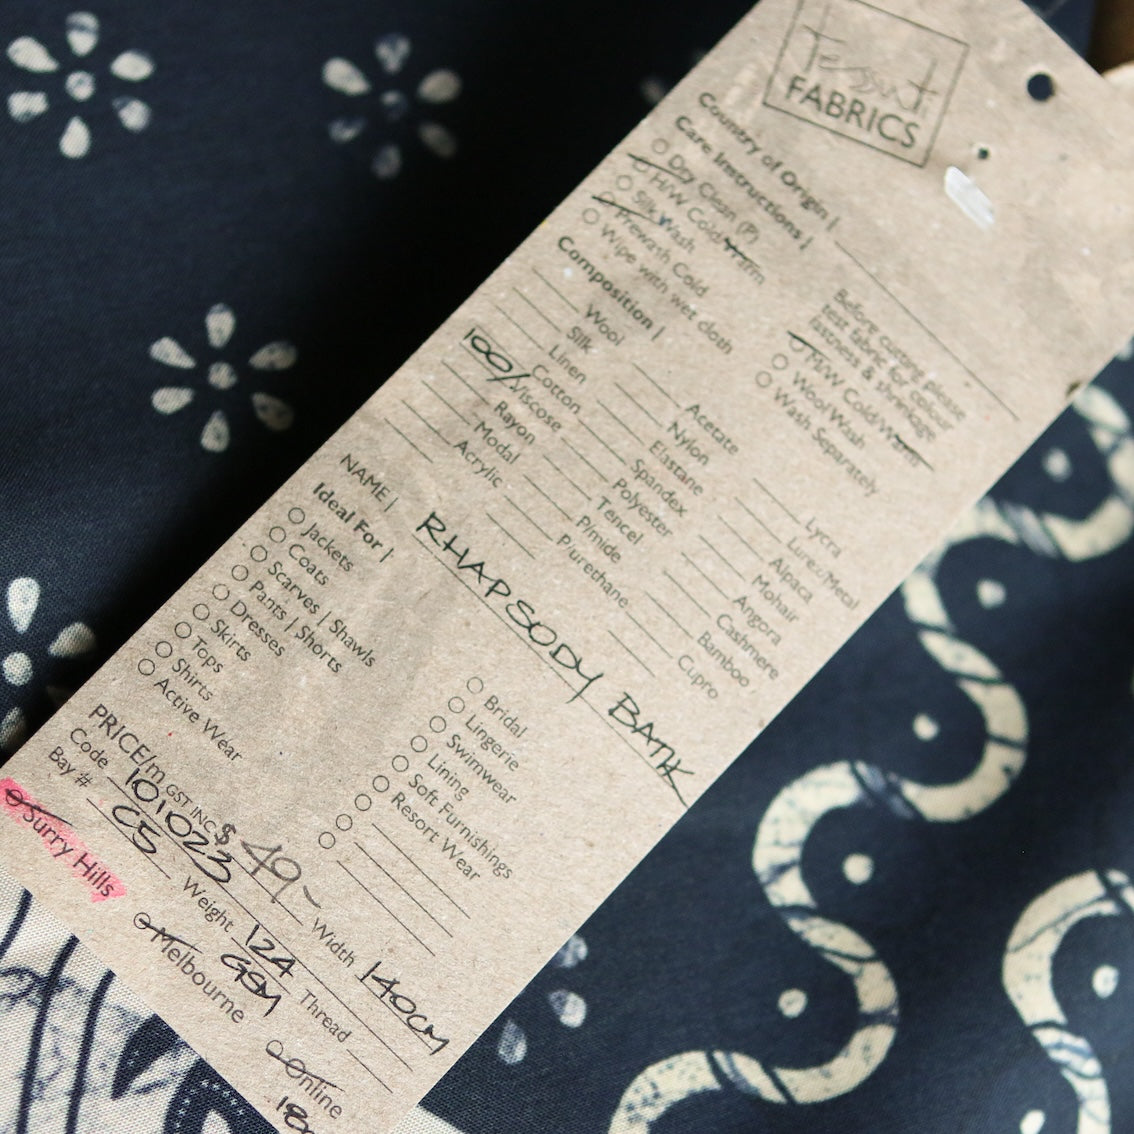 Tessuti
FABRICS
Country of Origin |
Care Instructions |
Dry Clean (P)
H/W Cold/Warm
Silk Wash
Prewash Cold
Wipe with wet cloth
Before cutting please
test fabric for colour
fastness & shrinkage
H/W Cold/Warm
Wool Wash
Wash Separately
Composition |
Wool
Silk
Linen
Cotton
100% Viscose
Rayon
Modal
Acrylic
Acetate
Nylon
Elastane
Spandex
Polyester
Tencel
P/mide
P/urethane
Lycra
Lurex/Metal
Alpaca
Mohair
Angora
Cashmere
Bamboo
Cupro
NAME | RHAPSODY BATIK
Ideal For |
Jackets
Coats
Scarves | Shawls
Pants | Shorts
Dresses
Skirts
Tops
Shirts
Active Wear
Bridal
Lingerie
Swimwear
Lining
Soft Furnishings
Resort Wear
PRICE/m GST INC $ 49-
Code 101023 Width 140CM
Bay # C5 Weight 124 GSM Thread
Surry Hills Melbourne Online